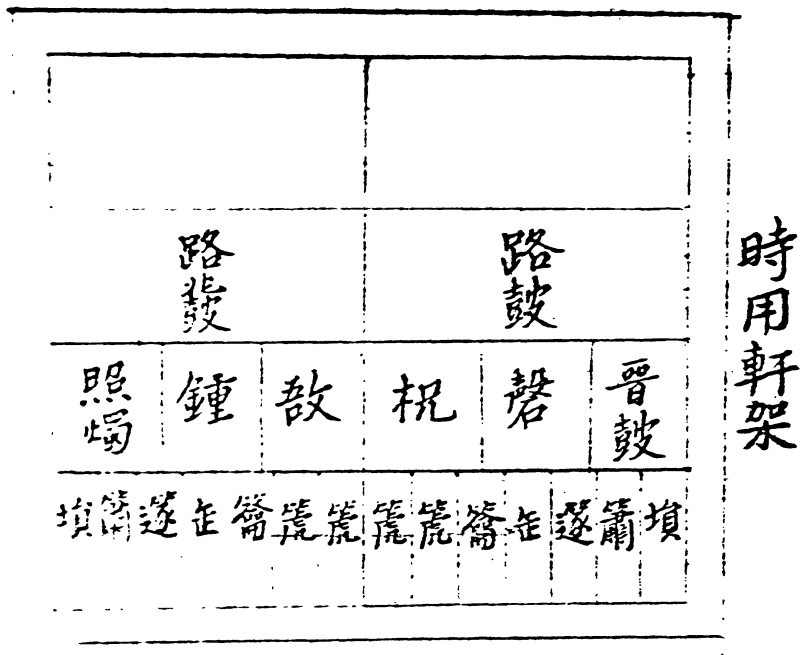 時用軒架
路鼓
路鼗
晉鼓
磬
柷
敔
鍾
照燭
塤簫篴缶籥篪篪篪篪籥缶篴簫塤